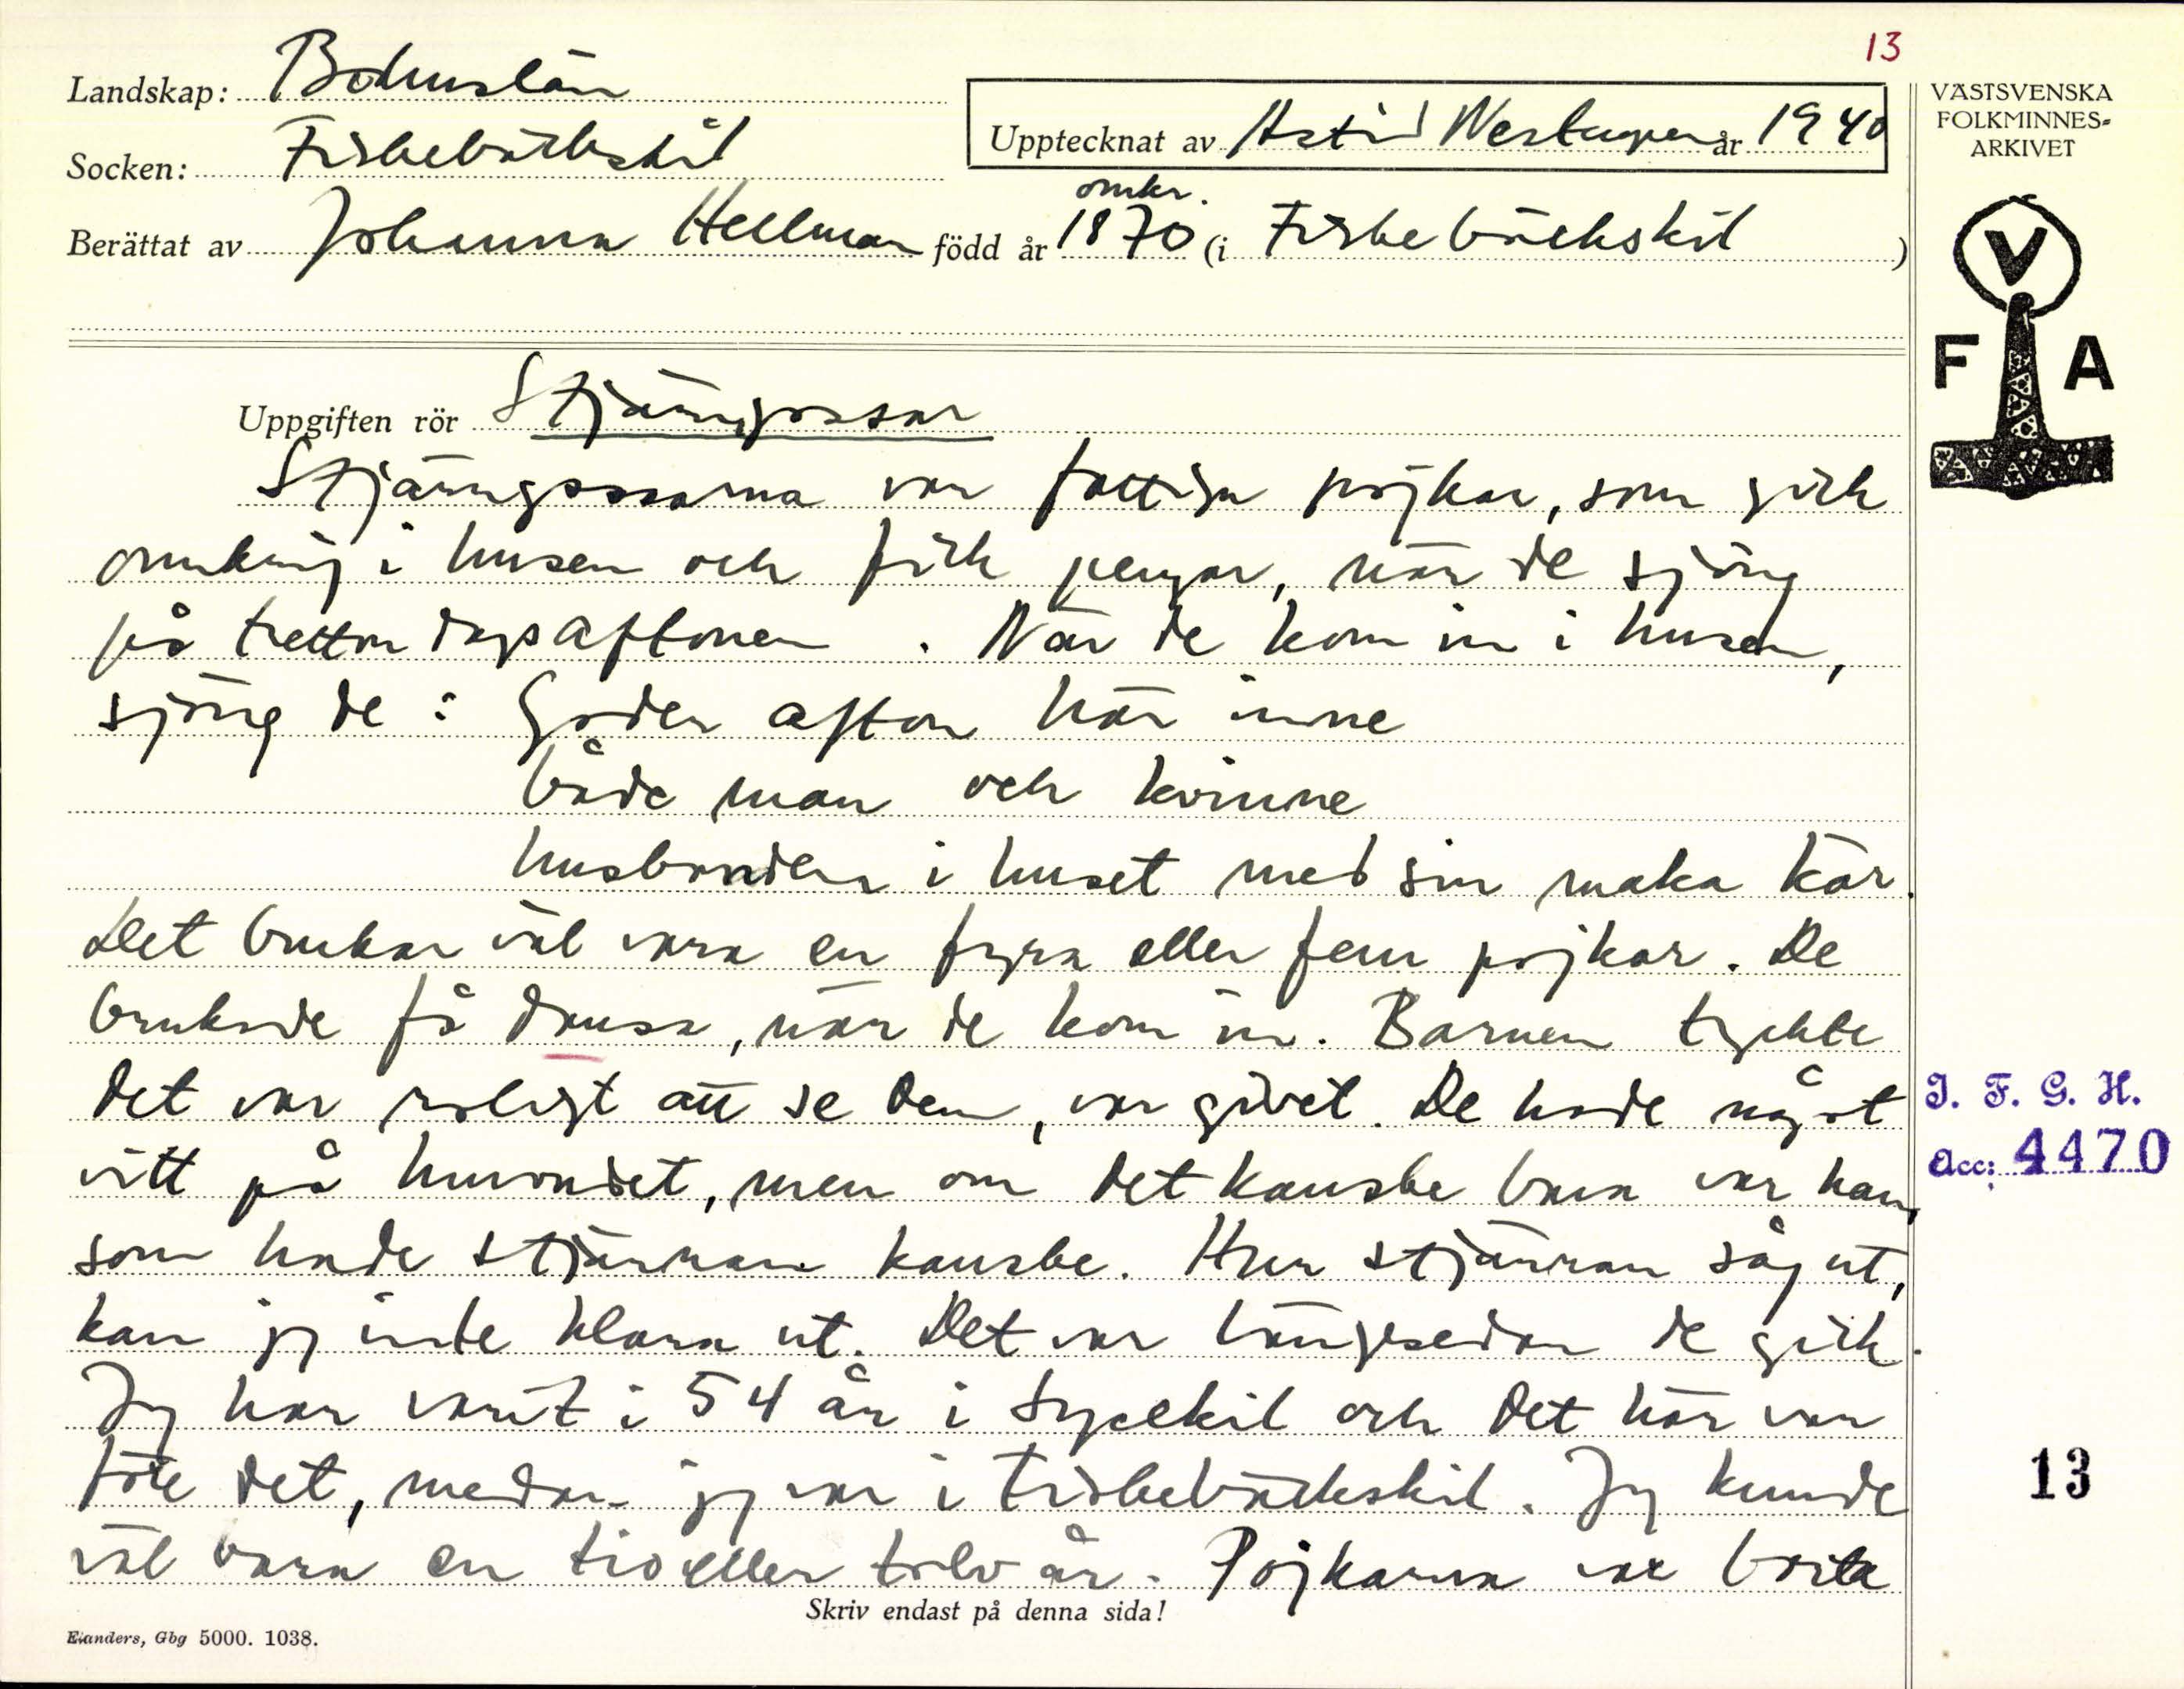 13
Landskap: Bohuslän
Socken: Fiskebäckskil
Upptecknat av Astrid år 1940
VÄSTSVENSKA
FOLKMINNES-
ARKIVET
omkr.
Berättat av Johanna Hellman född år 1870 (i Fiskebäckskil)
V
F A
Uppgiften rör Stjärngossar
Stjärngossarna var fattiga pojkar, som gick
omkring i husen och fick pengar, när de sjöng
på trettondagsaftonen. När de kom in i husen,
sjöng de: Goder afton här inne
både man och kvinne
husbonden i huset med sin maka kär.
Det brukar väl vara en fyra eller fem pojkar. De
brukade få dansa, när de kom in. Barnen tyckte
det var roligt att se dem, var givet. De hade något
vitt på huvudet, men om det kanske bara var han,
som hade stjärnan kanske. Hur stjärnan såg ut,
kan jag inte klara ut. Det var längesedan de gick.
Jag har varit i 54 år i Lysekil och det här var
före det, medan jag var i Fiskebäckskil. Jag kunde
väl vara en tio eller tolv år. Pojkarna var
I. F. G. H.
Acc: 4470
13
Skriv endast på denna sida!
Elanders, Gbg 5000. 1038.